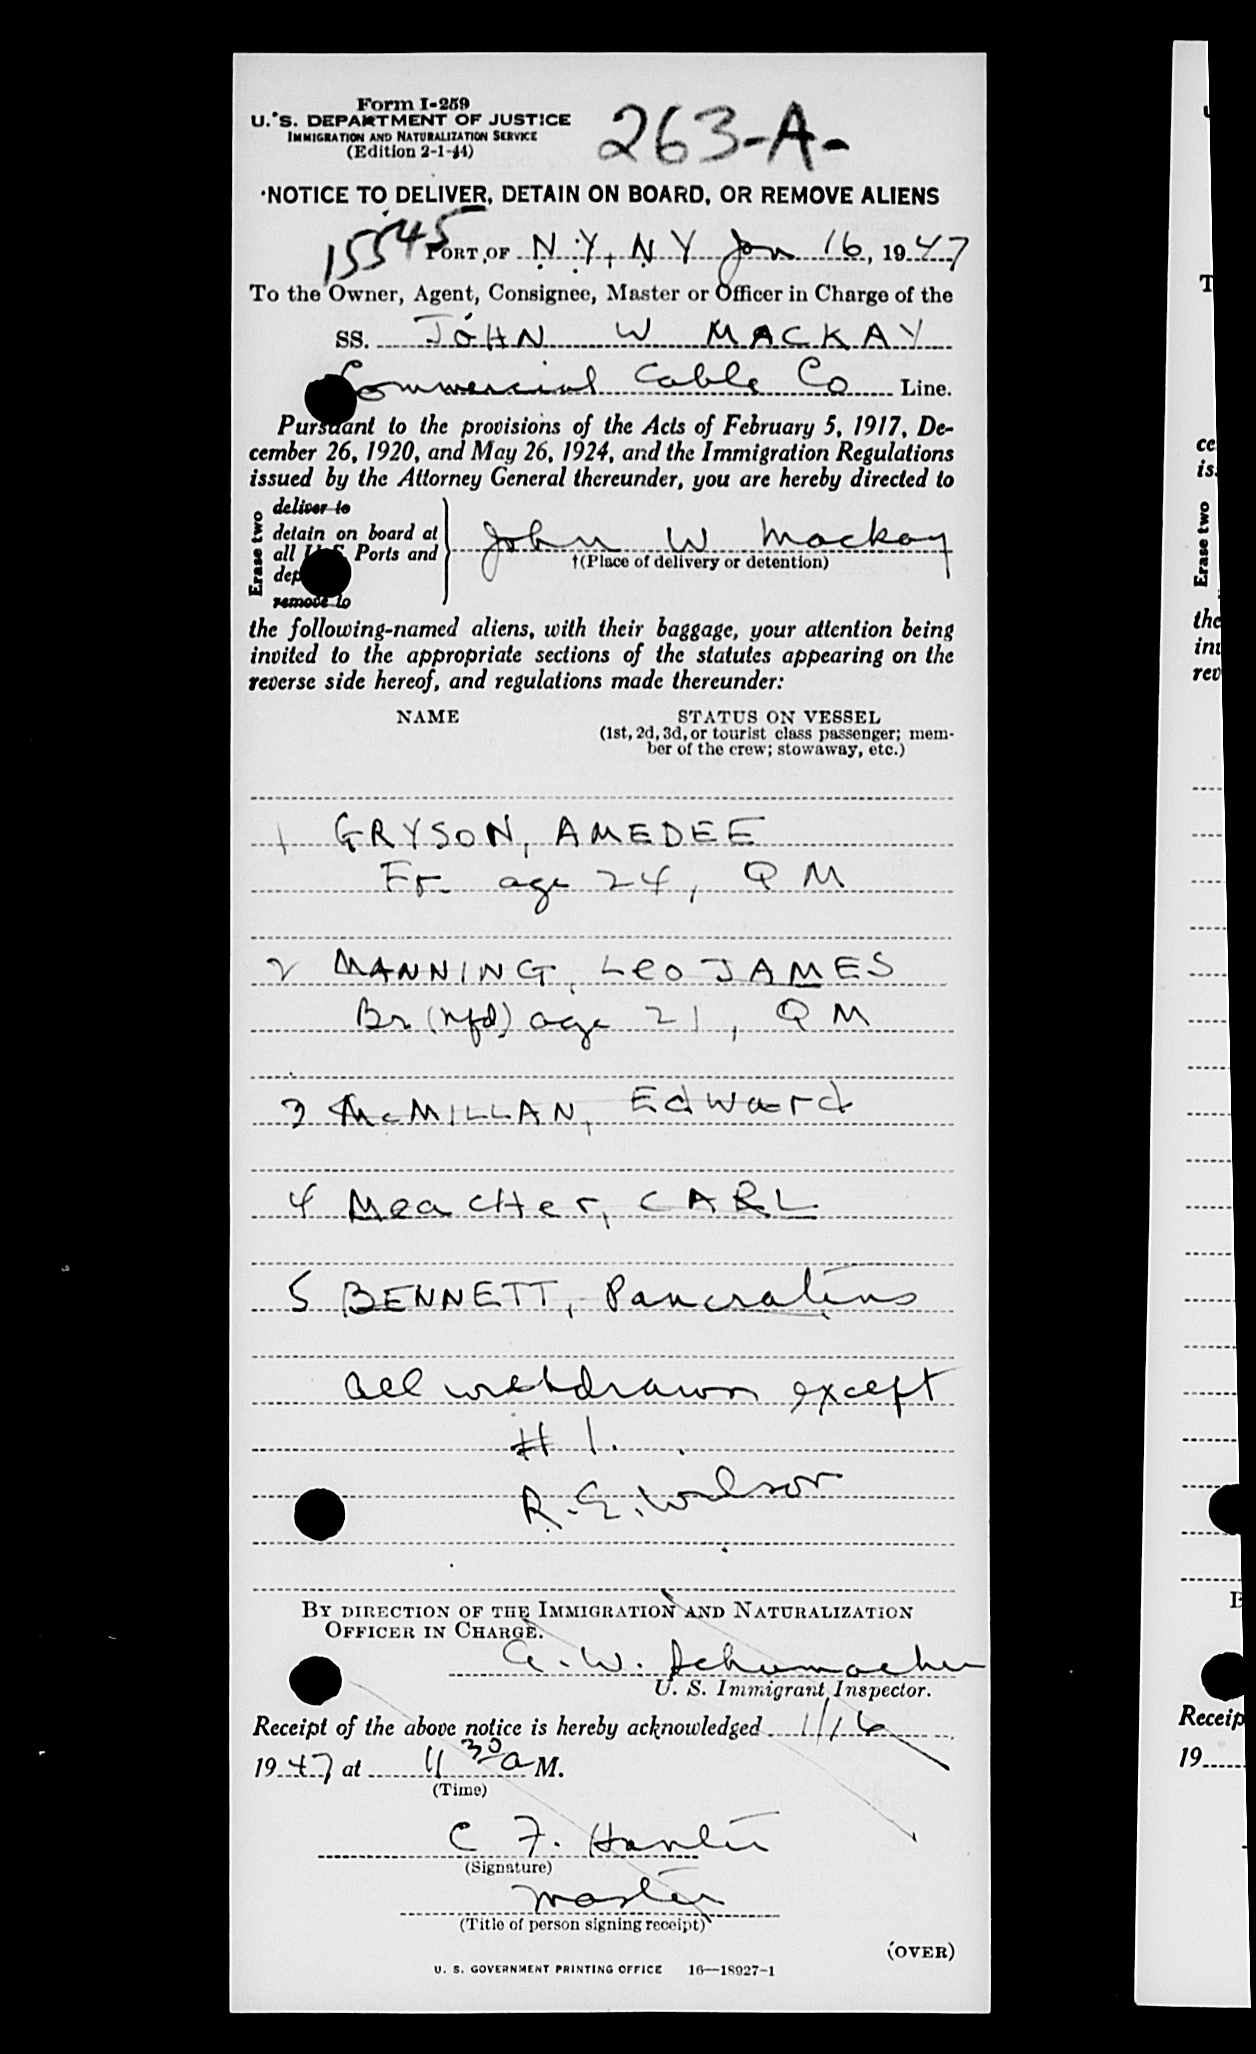 Form I-259
U. S. DEPARTMENT OF JUSTICE
IMMIGRATION AND NATURALIZATION SERVICE
(Edition 2-1-44)
263-A-
NOTICE TO DELIVER, DETAIN ON BOARD, OR REMOVE ALIENS
15545
PORT OF N.Y., N Y Jan 16, 1947
To the Owner, Agent, Consignee, Master or Officer in Charge of the
SS. JOHN W MACKAY
Commercial Cable Co Line.
Pursuant to the provisions of the Acts of February 5, 1917, De-
cember 26, 1920, and May 26, 1924, and the Immigration Regulations
issued by the Attorney General thereunder, you are hereby directed to
Erase two
deliver to
detain on board at
all U.S. Ports and
dep
remove to
John W Mackay
†(Place of delivery or detention)
the following-named aliens, with their baggage, your attention being
invited to the appropriate sections of the statutes appearing on the
reverse side hereof, and regulations made thereunder:
NAME STATUS ON VESSEL
(1st, 2d, 3d, or tourist class passenger; mem-
ber of the crew; stowaway, etc.)
1 GRYSON, AMEDEE
Fr. age 24, Q M
2 MANNING, Leo JAMES
Br (nfd) age 21, Q M
3 McMILLAN, Edward
4 MeacHer, CARL
5 BENNETT, Pancratius
all withdrawn except
# 1.
R. E. Wilson
BY DIRECTION OF THE IMMIGRATION AND NATURALIZATION
OFFICER IN CHARGE.
A. W. Schumacher
U. S. Immigrant Inspector.
Receipt of the above notice is hereby acknowledged 1/16
1947 at 11 30 a M.
(Time)
C F.
(Signature)
Master
(Title of person signing receipt)
(OVER)
U. S. GOVERNMENT PRINTING OFFICE 16—18927-1
Erase two
Receip
19